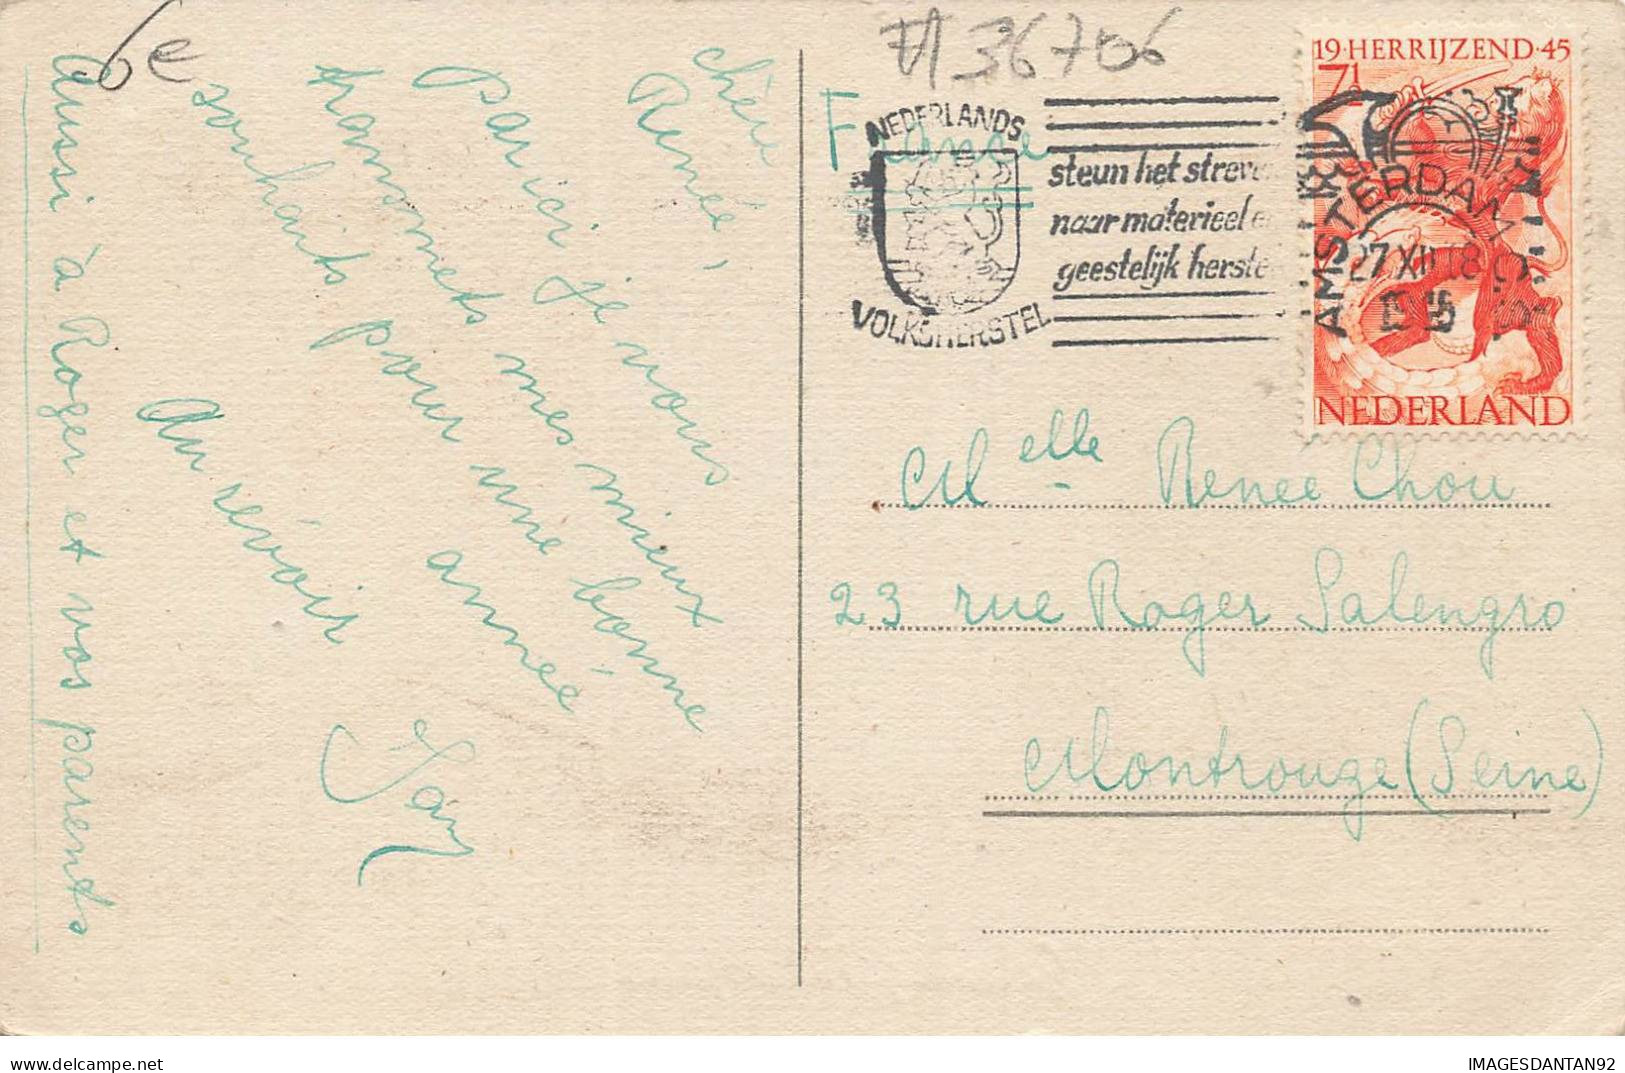 6e
#36706
chère
Renée,
Par ici je vous
transmets mes mieux
souhaits pour une bonne
année
Au revoir
Aussi à Roger et vos parents
France
NEDERLANDS
VOLKSHERSTEL
steun het streve
naar materieel e
geestelijk herste
AMSTERDAM
27 XII 18
19·HERRIJZEND·45
7½
NEDERLAND
Melle Renee Chou
23 rue Roger Salengro
Montrouge (Seine)
IMAGESDANTAN92